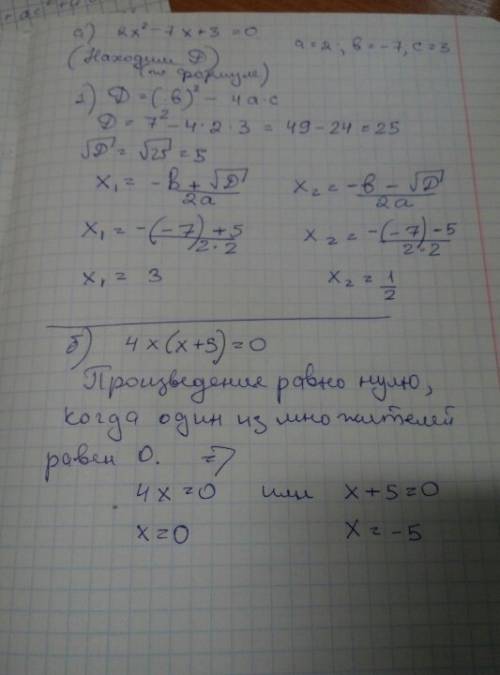 а) 2x² - 7x + 3 = 0
a = 2; в = -7, c = 3
(Находим D)
(по формуле)
1) D = (в)² - 4a·c
D = 7² - 4·2·3 = 49 - 24 = 25
√D = √25 = 5
x₁ = -в + √D / 2a x₂ = -в - √D / 2a
x₁ = -(-7) + 5 / 2·2 x₂ = -(-7) - 5 / 2·2
x₁ = 3 x₂ = 1/2
б) 4x(x+5) = 0
Произведение равно нулю,
когда один из множителей
равен 0. ⇒
4x = 0 или x + 5 = 0
x = 0 x = -5